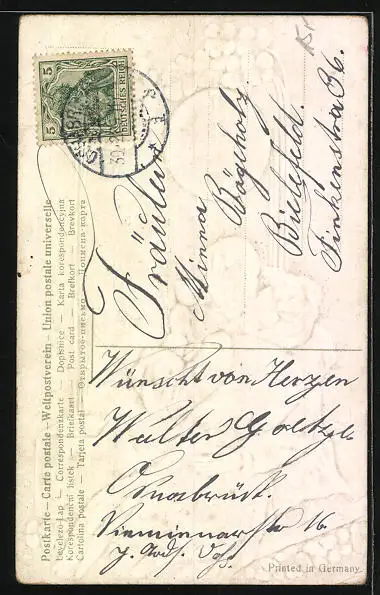 Postkarte — Carte postale — Weltpostverein — Union postale universelle
Levelező-Lap — Correspondenzkarte — Dopisnice — Karta korespondencyjna
Korespondenční lístek — Briefkaart — Post card — Brefkort — Brevkort
Cartolina postale — Tarjeta postal — Открытое письмо — Дописна карта
5 DEUTSCHES REICH 5
Fräulein
Minna
Bögeholz
Bielefeld.
Finkenstraße 36.
Wünscht von Herzen
Walter
Osnabrück.
16
Printed in Germany